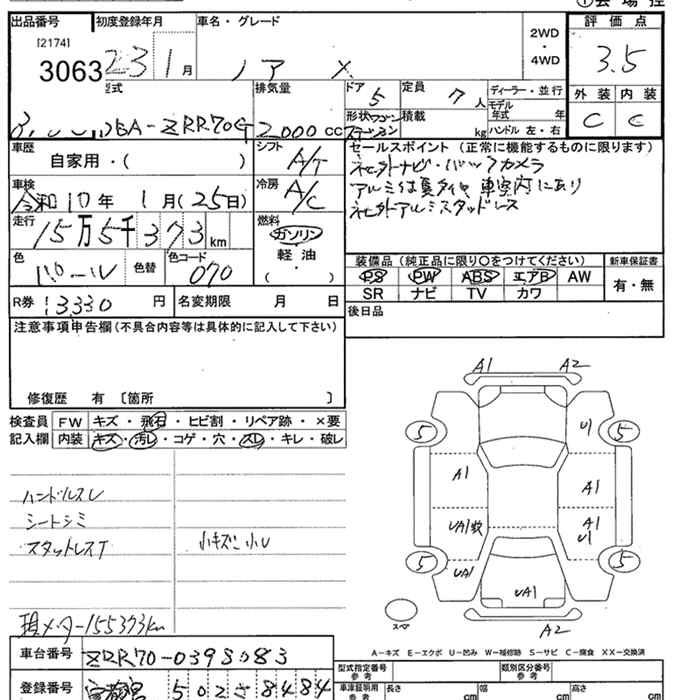 ① 会 場 控
出品番号 初度登録年月 車名・グレード 2WD ・ 4WD 評 価 点
[2174]
3063 23 1月 ノア X 3.5
型式 排気量 ドア 5 定員 7人 ディーラー・並行 外装 内装
DBA-ZRR70G 2,000 cc 形状 ワゴン ステーション 積載 kg モデル年式 年 ハンドル 左・右 C C
車歴 自家用・( ) シフト A/T
セールスポイント (正常に機能するものに限ります)
社外ナビ・バックカメラ
車検 令和10年 1月(25日) 冷房 A/C
アルミは夏タイヤ 車室内にあり
社外アルミスタッドレス
走行 15万5千373km 燃料 ガソリン 軽油 ・ ( )
色 パール 色替 色コード 070
装備品 (純正品に限り〇をつけてください) 新車保証書
PS PW ABS エアB AW 有・無
SR ナビ TV カワ
R券 13,330 円 名変期限 月 日
後日品
注意事項申告欄(不具合内容等は具体的に記入して下さい)
修復歴 有 〔箇所 〕
検査員 記入欄 FW キズ ・ 飛石 ・ ヒビ割 ・ リペア跡 ・ ×要
内装 キズ ・ 汚レ ・ コゲ ・ 穴 ・ スレ ・ キレ ・ 破レ
ハンドルスレ
シートシミ
スタットレスT 小キズ 小U
現メーター155373km
A1 A2
5 U1 5
A1 A1
UA1数 A1 U1
5 UA1 UA1 5
スペア A2
A-キズ E-エクボ U-凹み W-補修跡 S-サビ C-腐食 XX-交換済
車台番号 ZRR70-0398083
登録番号 502 8484
型式指定番号 参考 類別区分番号 参考
車庫証明用 参考 長さ cm 幅 cm 高さ cm